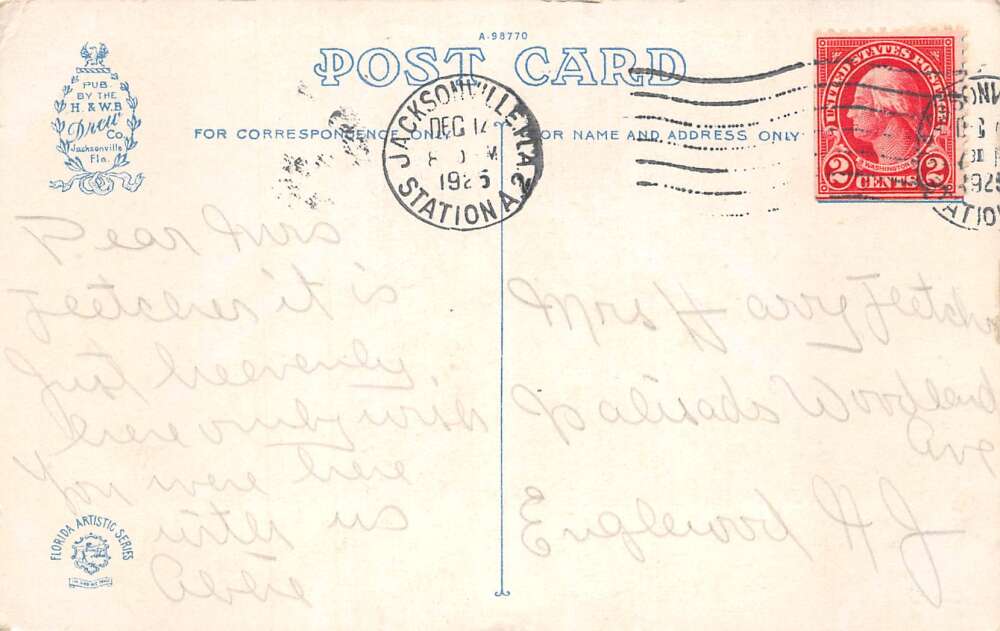 A-98770
POST CARD
PUB
BY THE
H. & W.B
Drew
Co.
Jacksonville
Fla.
FOR CORRESPONDENCE ONLY
FOR NAME AND ADDRESS ONLY
JACKSONVILLE, FLA.
DEC 12
1925
STATION A 2
UNITED STATES POSTAGE
WASHINGTON
2 CENTS 2
1925
STATIO
Dear Mrs
Fletcher it is
Just heevenly
here onby wish
You were here
with us
Abbie
Mrs Harry Fletcher
Palisada Woodland
Ave
Englewood N J
FLORIDA ARTISTIC SERIES